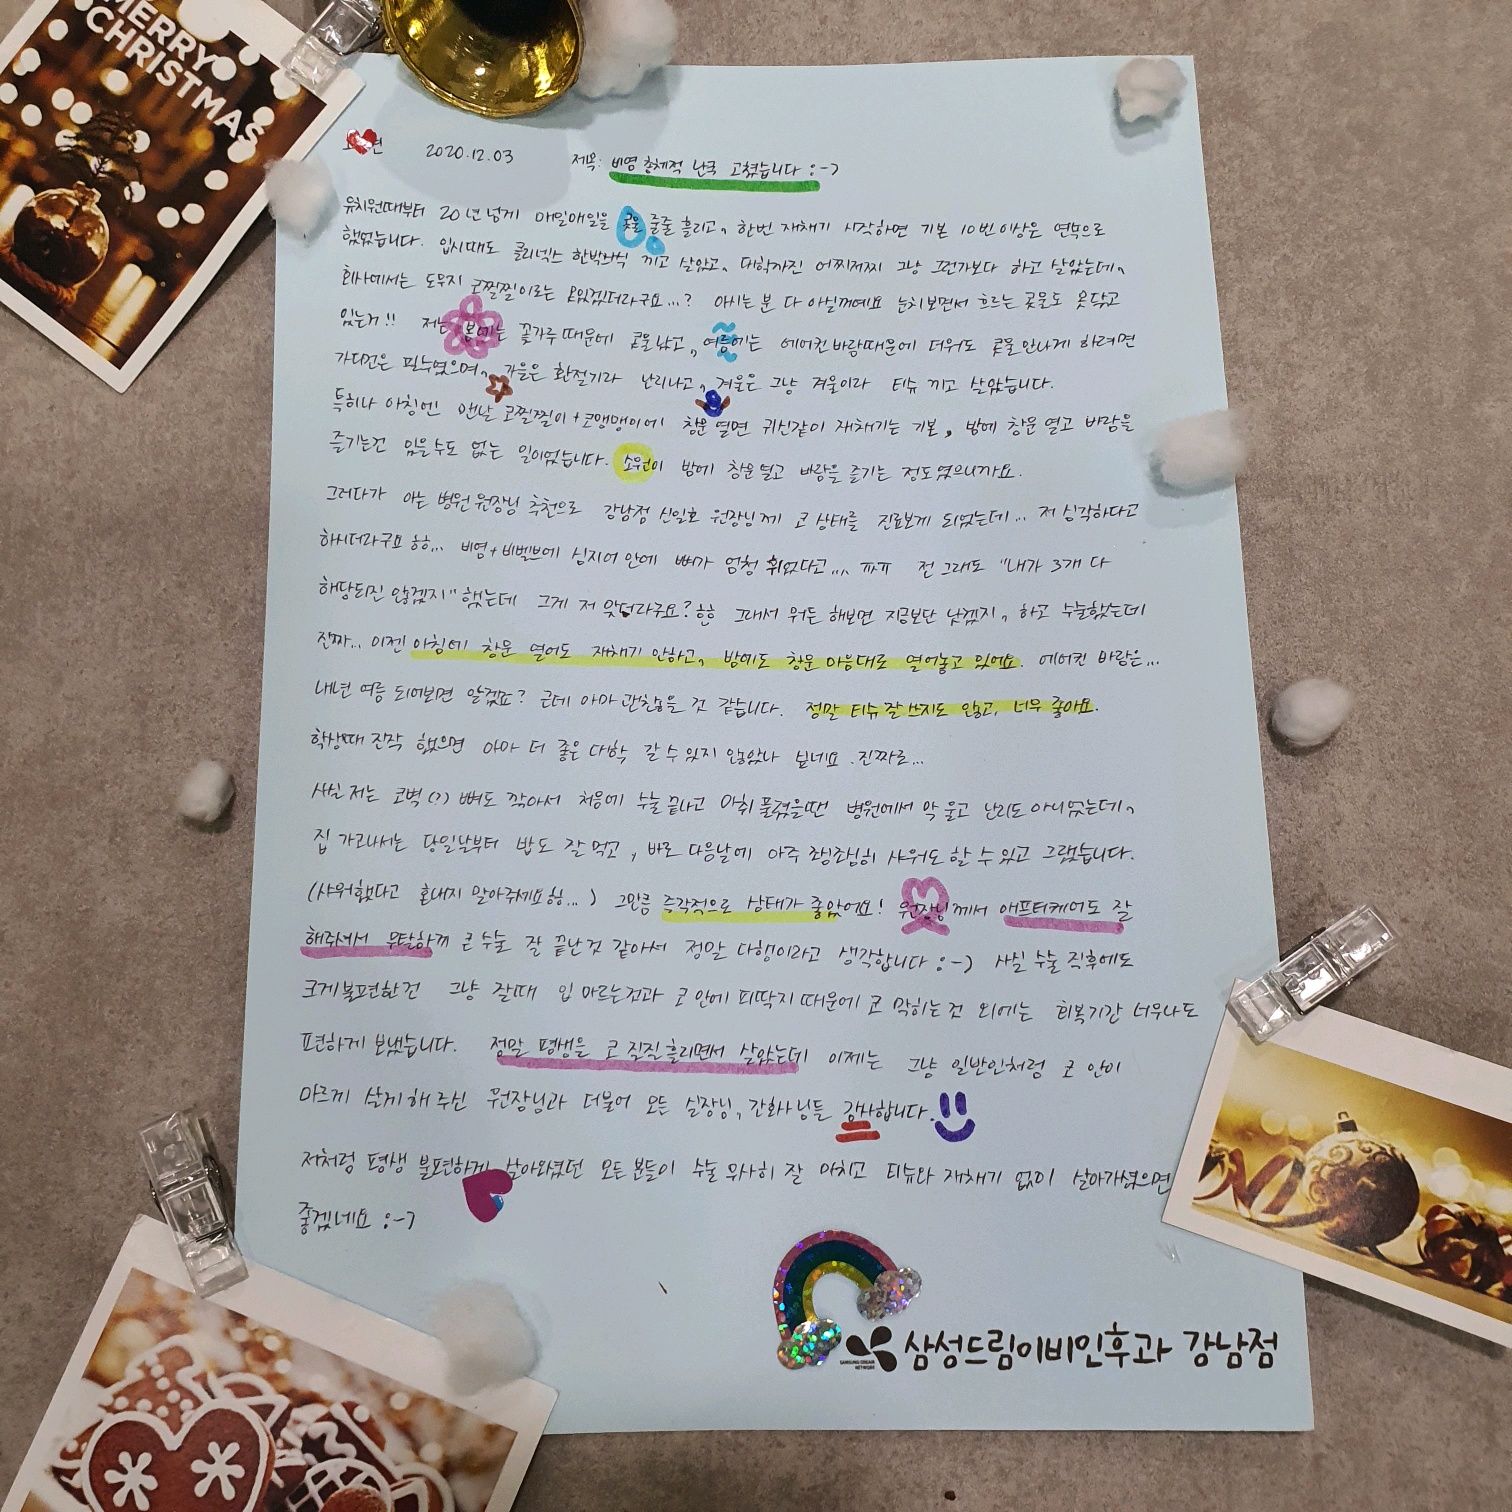 MERRY
CHRISTMAS
2020.12.03 제목: 비염 총체적 난국 고쳤습니다 :-)
유치원때부터 20년넘게 매일매일을 콧물 줄줄 흘리고, 한번 재채기 시작하면 기본 10번이상은 연속으로
했었습니다. 입시때도 클리넥스 한박스씩 끼고 살았고, 대학까진 어찌저찌 그냥 그런가보다 하고 살았는데,
회사에서는 도무지 코찔찔이로는 못있겠더라구요...? 아시는 분 다 아실꺼에요 눈치보면서 흐르는 콧물도 못닦고
있는거!! 저는 봄에는 꽃가루 때문에 콧물났고, 여름에는 에어컨바람때문에 더워도 콧물 안나게 하려면
가디건은 필수였으며, 가을은 환절기라 난리나고, 겨울은 그냥 겨울이라 티슈 끼고 살았습니다.
특히나 아침엔 맨날 코찔찔이+코맹맹이에 창문 열면 귀신같이 재채기는 기본, 밤에 창문 열고 바람을
즐기는건 있을수도 없는 일이었습니다. 소원이 밤에 창문 열고 바람을 즐기는 정도였으니까요.
그러다가 아는 병원 원장님 추천으로 강남점 신일호 원장님께 코 상태를 진료보게 되었는데... 저 심각하다고
하시더라구요 하하... 비염+비밸브에 심지어 안에 뼈가 엄청 휘었다고... ㅠㅠ 전 그래도 "내가 3개 다
해당되진 않겠지" 했는데 그게 저 맞더라구요? 하하 그래서 뭐든 해보면 지금보단 낫겠지, 하고 수술했는데
진짜... 이젠 아침에 창문 열어도 재채기 안하고, 밤에도 창문 마음대로 열어놓고 있어요. 에어컨 바람은...
내년 여름 되어보면 알겠죠? 근데 아마 괜찮을 것 같습니다. 정말 티슈 잘 쓰지도 않고, 너무 좋아요.
학생때 진작 했으면 아마 더 좋은 대학 갈 수 있지 않았나 싶네요. 진짜로...
사실 저는 코벽(?) 뼈도 깎아서 처음에 수술 끝나고 마취 풀렸을땐 병원에서 막 울고 난리도 아니었는데,
집 가고나서는 당일날부터 밥도 잘 먹고, 바로 다음날에 아주 조심조심히 샤워도 할 수 있고 그랬습니다.
(샤워했다고 혼내지 말아주세요하하...) 그만큼 즉각적으로 상태가 좋았어요! 원장님께서 애프터케어도 잘
해주셔서 무탈하게 큰 수술 잘 끝난것 같아서 정말 다행이라고 생각합니다 :-) 사실 수술 직후에도
크게 불편한건 그냥 잘때 입 마르는것과 코 안에 피딱지 때문에 코 막히는 것 외에는 회복기간 너무나도
편하게 보냈습니다. 정말 평생을 코 질질 흘리면서 살았는데 이제는 그냥 일반인처럼 코 안이
마르게 살게 해 주신 원장님과 더불어 모든 실장님, 간호사님들 감사합니다.
저처럼 평생 불편하게 살아와셨던 모든 분들이 수술 무사히 잘 마치고 티슈와 재채기 없이 살아가셨으면
좋겠네요 :-)
SAMSUNG DREAM
NETWORK
삼성드림이비인후과 강남점